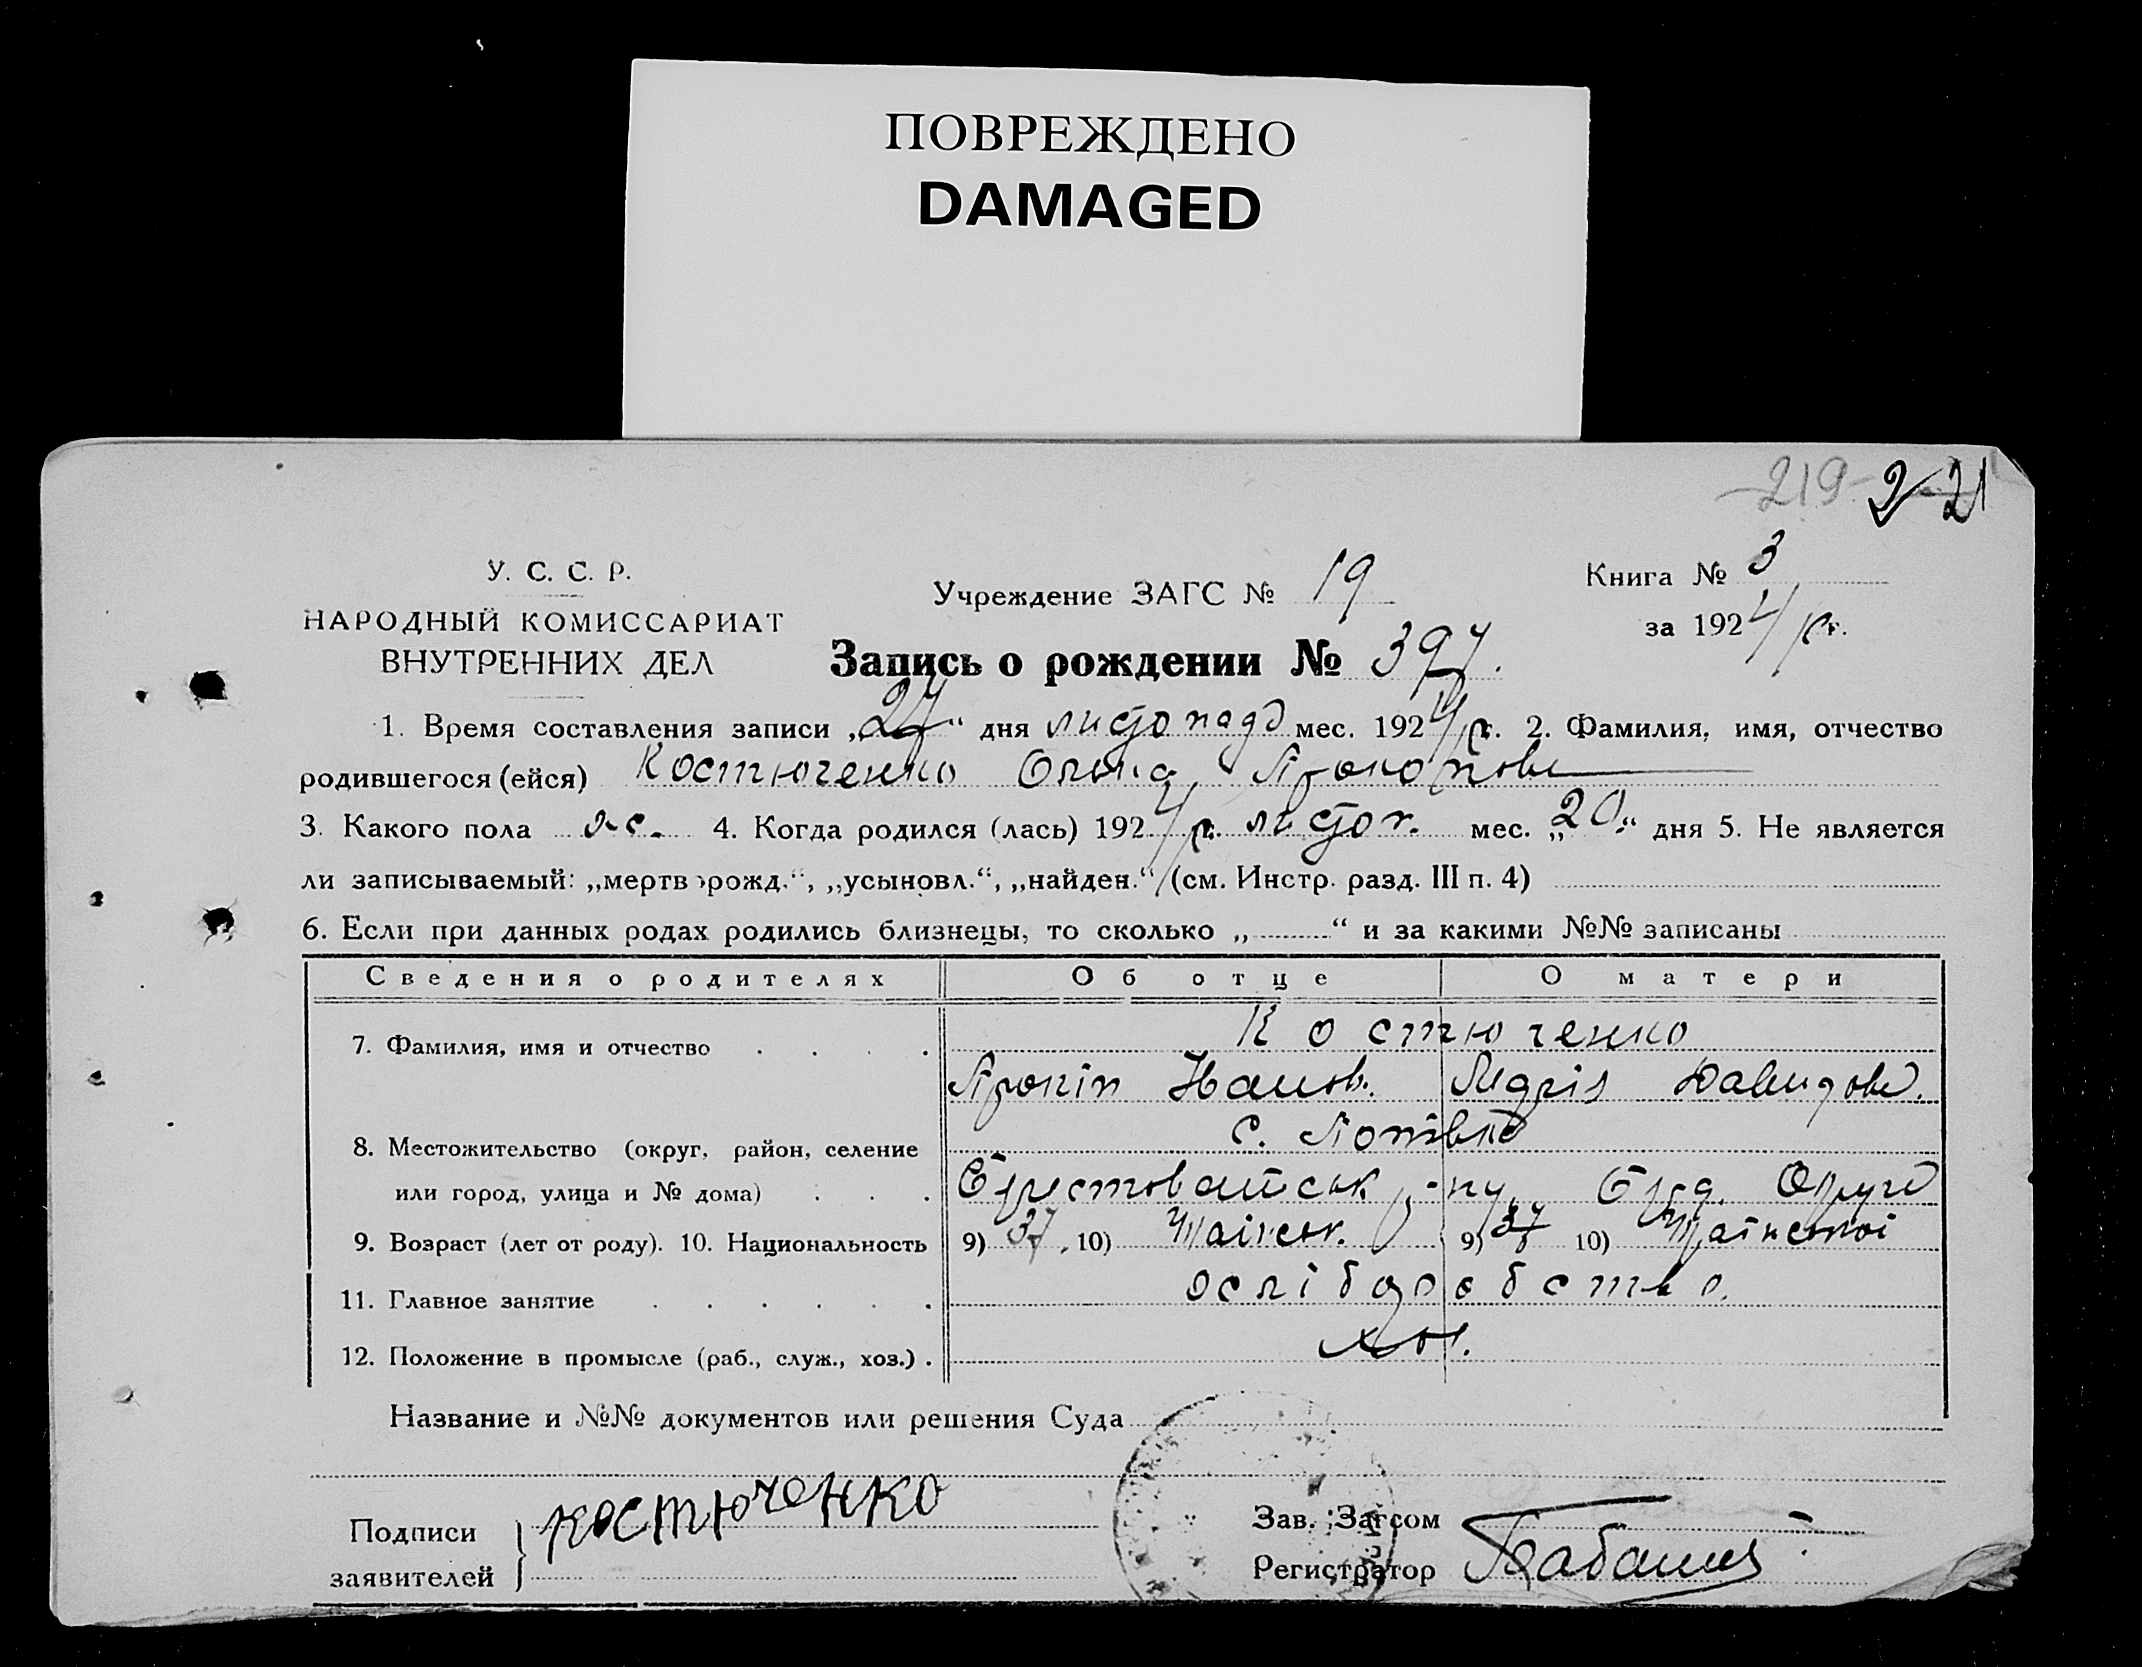 ПОВРЕЖДЕНО
DAMAGED
219 221
У. С. С. Р.
НАРОДНЫЙ КОМИССАРИАТ
ВНУТРЕННИХ ДЕЛ
Учреждение ЗАГС № 19
Книга № 3
за 1924 р.
Запись о рождении № 397.
1. Время составления записи „27“ дня листопада мес. 1924 р. 2. Фамилия, имя, отчество
родившегося (ейся) Костюченко Ольга Прокопове
3. Какого пола ж. 4. Когда родился (лась) 1924 р. листоп. мес. „20“ дня 5. Не является
ли записываемый: „мертворожд.“, „усыновл.“, „найден.“ (см. Инстр. разд. III п. 4)
6. Если при данных родах родились близнецы, то сколько „ “ и за какими №№ записаны
Сведения о родителях Об отце О матери
7. Фамилия, имя и отчество Костюченко
Прокіп Иванов. Марія Давидов.
8. Местожительство (округ, район, селение с.
или город, улица и № дома) р-ну, Округи
9. Возраст (лет от роду). 10. Национальность 9) 37, 10) 9) 37 10)
11. Главное занятие хліборобство.
12. Положение в промысле (раб., служ., хоз.)
Название и №№ документов или решения Суда
Подписи
заявителей
костюченко
Зав. Загсом
Регистратор